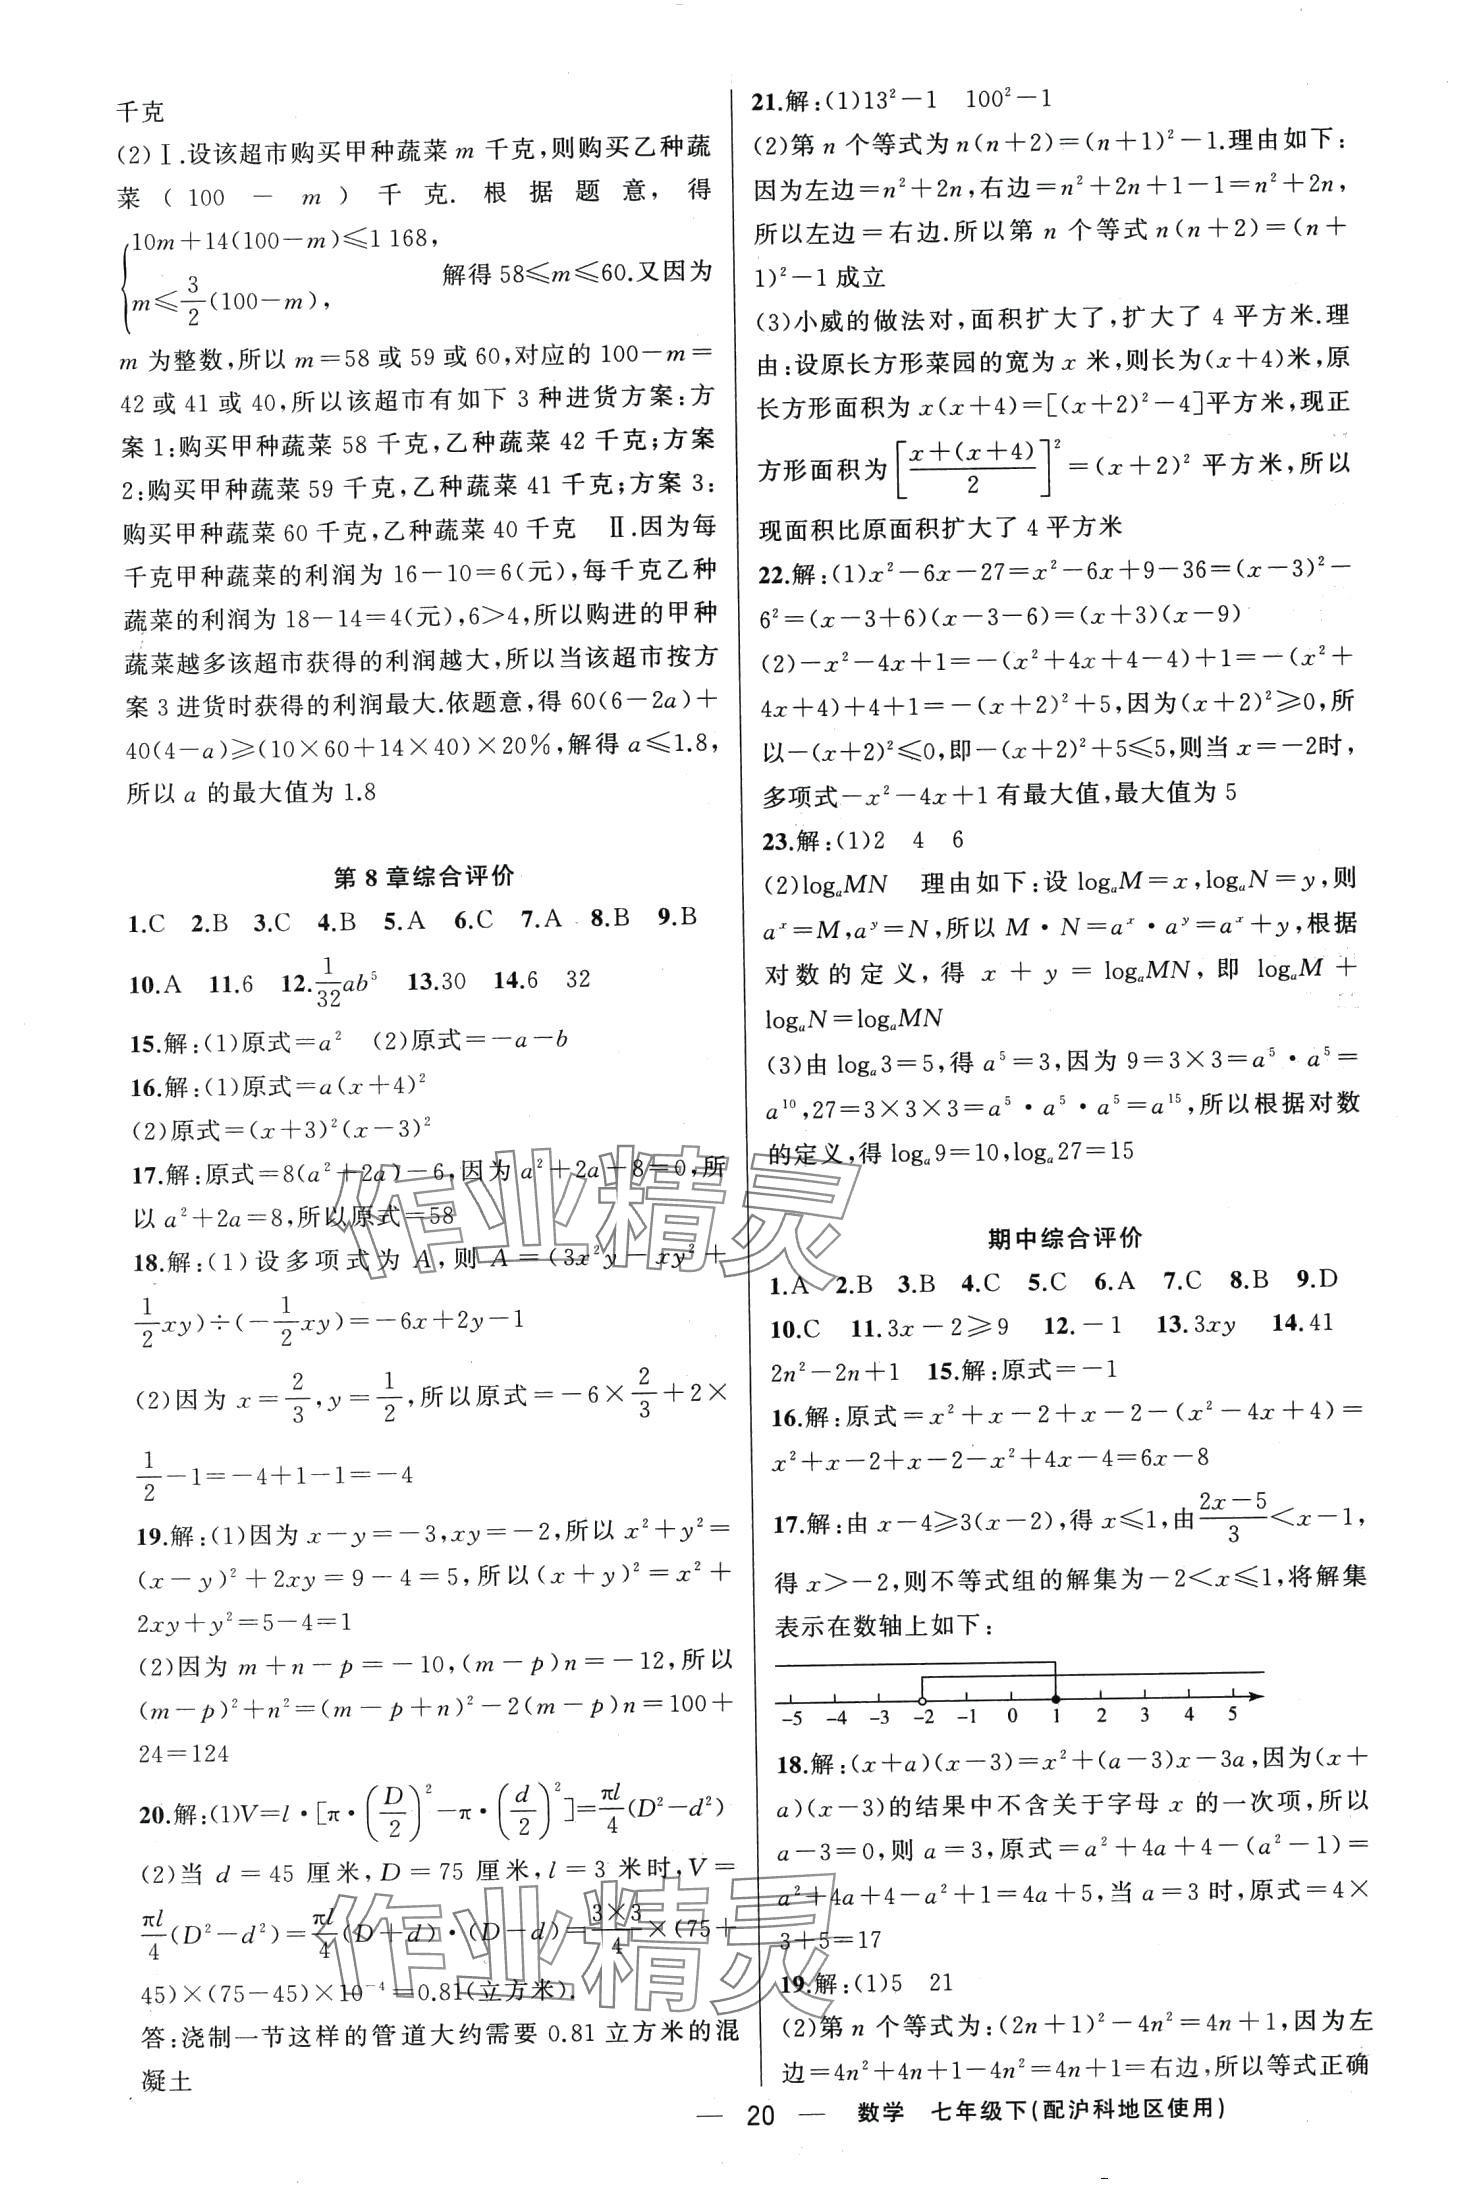 千克
(2)Ⅰ.设该超市购买甲种蔬菜 m 千克,则购买乙种蔬
菜(100-m)千克.根据题意,得
{10m+14(100-m)≤1 168,
m≤3/2(100-m), 解得 58≤m≤60.又因为
m 为整数,所以 m=58 或 59 或 60,对应的 100-m=
42 或 41 或 40,所以该超市有如下 3 种进货方案:方
案 1:购买甲种蔬菜 58 千克,乙种蔬菜 42 千克;方案
2:购买甲种蔬菜 59 千克,乙种蔬菜 41 千克;方案 3:
购买甲种蔬菜 60 千克,乙种蔬菜 40 千克 Ⅱ.因为每
千克甲种蔬菜的利润为 16-10=6(元),每千克乙种
蔬菜的利润为 18-14=4(元),6>4,所以购进的甲种
蔬菜越多该超市获得的利润越大,所以当该超市按方
案 3 进货时获得的利润最大.依题意,得 60(6-2a)+
40(4-a)≥(10×60+14×40)×20%,解得 a≤1.8,
所以 a 的最大值为 1.8
第 8 章综合评价
1.C 2.B 3.C 4.B 5.A 6.C 7.A 8.B 9.B
10.A 11.6 12.1/32ab⁵ 13.30 14.6 32
15.解:(1)原式=a² (2)原式=-a-b
16.解:(1)原式=a(x+4)²
(2)原式=(x+3)²(x-3)²
17.解:原式=8(a²+2a)-6,因为 a²+2a-8=0,所
以 a²+2a=8,所以原式=58
18.解:(1)设多项式为 A,则 A=(3x²y-xy²+
1/2xy)÷(-1/2xy)=-6x+2y-1
(2)因为 x=2/3,y=1/2,所以原式=-6×2/3+2×
1/2-1=-4+1-1=-4
19.解:(1)因为 x-y=-3,xy=-2,所以 x²+y²=
(x-y)²+2xy=9-4=5,所以(x+y)²=x²+
2xy+y²=5-4=1
(2)因为 m+n-p=-10,(m-p)n=-12,所以
(m-p)²+n²=(m-p+n)²-2(m-p)n=100+
24=124
20.解:(1)V=l·[π·(D/2)²-π·(d/2)²]=πl/4(D²-d²)
(2)当 d=45 厘米,D=75 厘米,l=3 米时,V=
πl/4(D²-d²)=πl/4(D+d)·(D-d)=3×3/4×(75+
45)×(75-45)×10⁻⁴=0.81(立方米).
答:浇制一节这样的管道大约需要 0.81 立方米的混
凝土
21.解:(1)13²-1 100²-1
(2)第 n 个等式为 n(n+2)=(n+1)²-1.理由如下:
因为左边=n²+2n,右边=n²+2n+1-1=n²+2n,
所以左边=右边.所以第 n 个等式 n(n+2)=(n+
1)²-1 成立
(3)小威的做法对,面积扩大了,扩大了 4 平方米.理
由:设原长方形菜园的宽为 x 米,则长为(x+4)米,原
长方形面积为 x(x+4)=[(x+2)²-4]平方米,现正
方形面积为[x+(x+4)/2]²=(x+2)² 平方米,所以
现面积比原面积扩大了 4 平方米
22.解:(1)x²-6x-27=x²-6x+9-36=(x-3)²-
6²=(x-3+6)(x-3-6)=(x+3)(x-9)
(2)-x²-4x+1=-(x²+4x+4-4)+1=-(x²+
4x+4)+4+1=-(x+2)²+5,因为(x+2)²≥0,所
以-(x+2)²≤0,即-(x+2)²+5≤5,则当 x=-2时,
多项式-x²-4x+1 有最大值,最大值为 5
23.解:(1)2 4 6
(2)logₐMN 理由如下:设 logₐM=x,logₐN=y,则
aˣ=M,aʸ=N,所以 M·N=aˣ·aʸ=aˣ+y,根据
对数的定义,得 x+y=logₐMN,即 logₐM+
logₐN=logₐMN
(3)由 logₐ3=5,得 a⁵=3,因为 9=3×3=a⁵·a⁵=
a¹⁰,27=3×3×3=a⁵·a⁵·a⁵=a¹⁵,所以根据对数
的定义,得 logₐ9=10,logₐ27=15
期中综合评价
1.A 2.B 3.B 4.C 5.C 6.A 7.C 8.B 9.D
10.C 11.3x-2≥9 12.-1 13.3xy 14.41
2n²-2n+1 15.解:原式=-1
16.解:原式=x²+x-2+x-2-(x²-4x+4)=
x²+x-2+x-2-x²+4x-4=6x-8
17.解:由 x-4≥3(x-2),得 x≤1,由2x-5/3<x-1,
得 x>-2,则不等式组的解集为-2<x≤1,将解集
表示在数轴上如下:
-5 -4 -3 -2 -1 0 1 2 3 4 5
18.解:(x+a)(x-3)=x²+(a-3)x-3a,因为(x+
a)(x-3)的结果中不含关于字母 x 的一次项,所以
a-3=0,则 a=3,原式=a²+4a+4-(a²-1)=
a²+4a+4-a²+1=4a+5,当 a=3 时,原式=4×
3+5=17
19.解:(1)5 21
(2)第 n 个等式为:(2n+1)²-4n²=4n+1,因为左
边=4n²+4n+1-4n²=4n+1=右边,所以等式正确
— 20 — 数学 七年级下(配沪科地区使用)
作业精灵
作业精灵